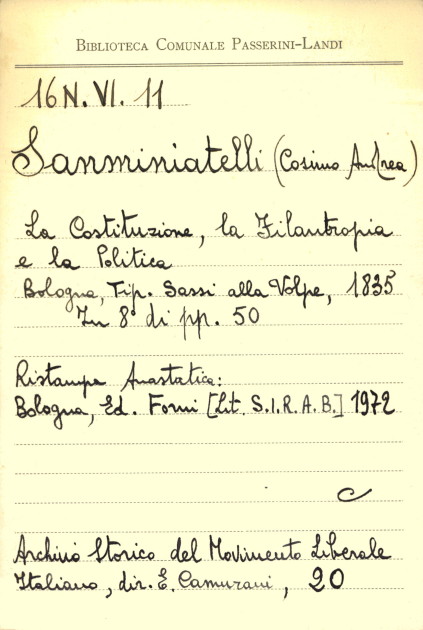 BIBLIOTECA COMUNALE PASSERINI-LANDI
16 N. VI. 11
Sanminiatelli (Cosimo Andrea)
La Costituzione, la Filantropia
e la Politica
Bologna, Tip. Sassi alla Volpe, 1835
In 8° di pp. 50
Ristampa Anastatica:
Bologna, Ed. Forni [Lit. S.I.R.A.B.] 1972
C
Archivio Storico del Movimento Liberale
Italiano, dir. E. Camurani, 20